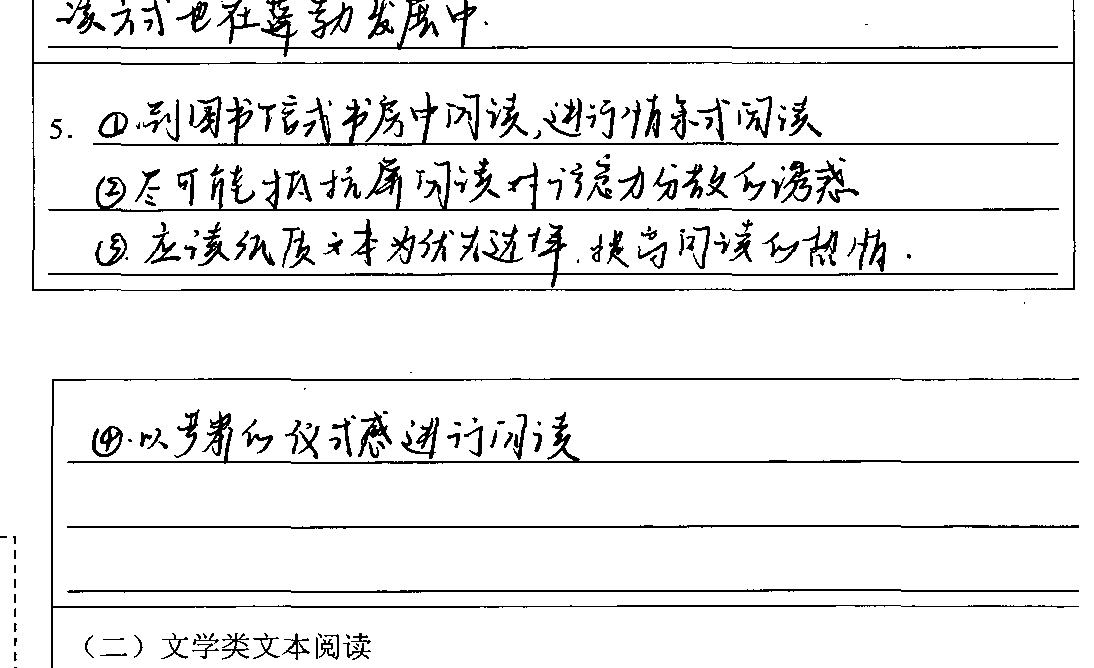 该方式也在蓬勃发展中.
5. ①到图书馆或书房中阅读,进行情景式阅读
②尽可能抵抗屏阅读对注意力分散的诱惑
③.应该纸质文本为优先选择.提高阅读的热情.
④.以 的仪式感进行阅读
(二)文学类文本阅读